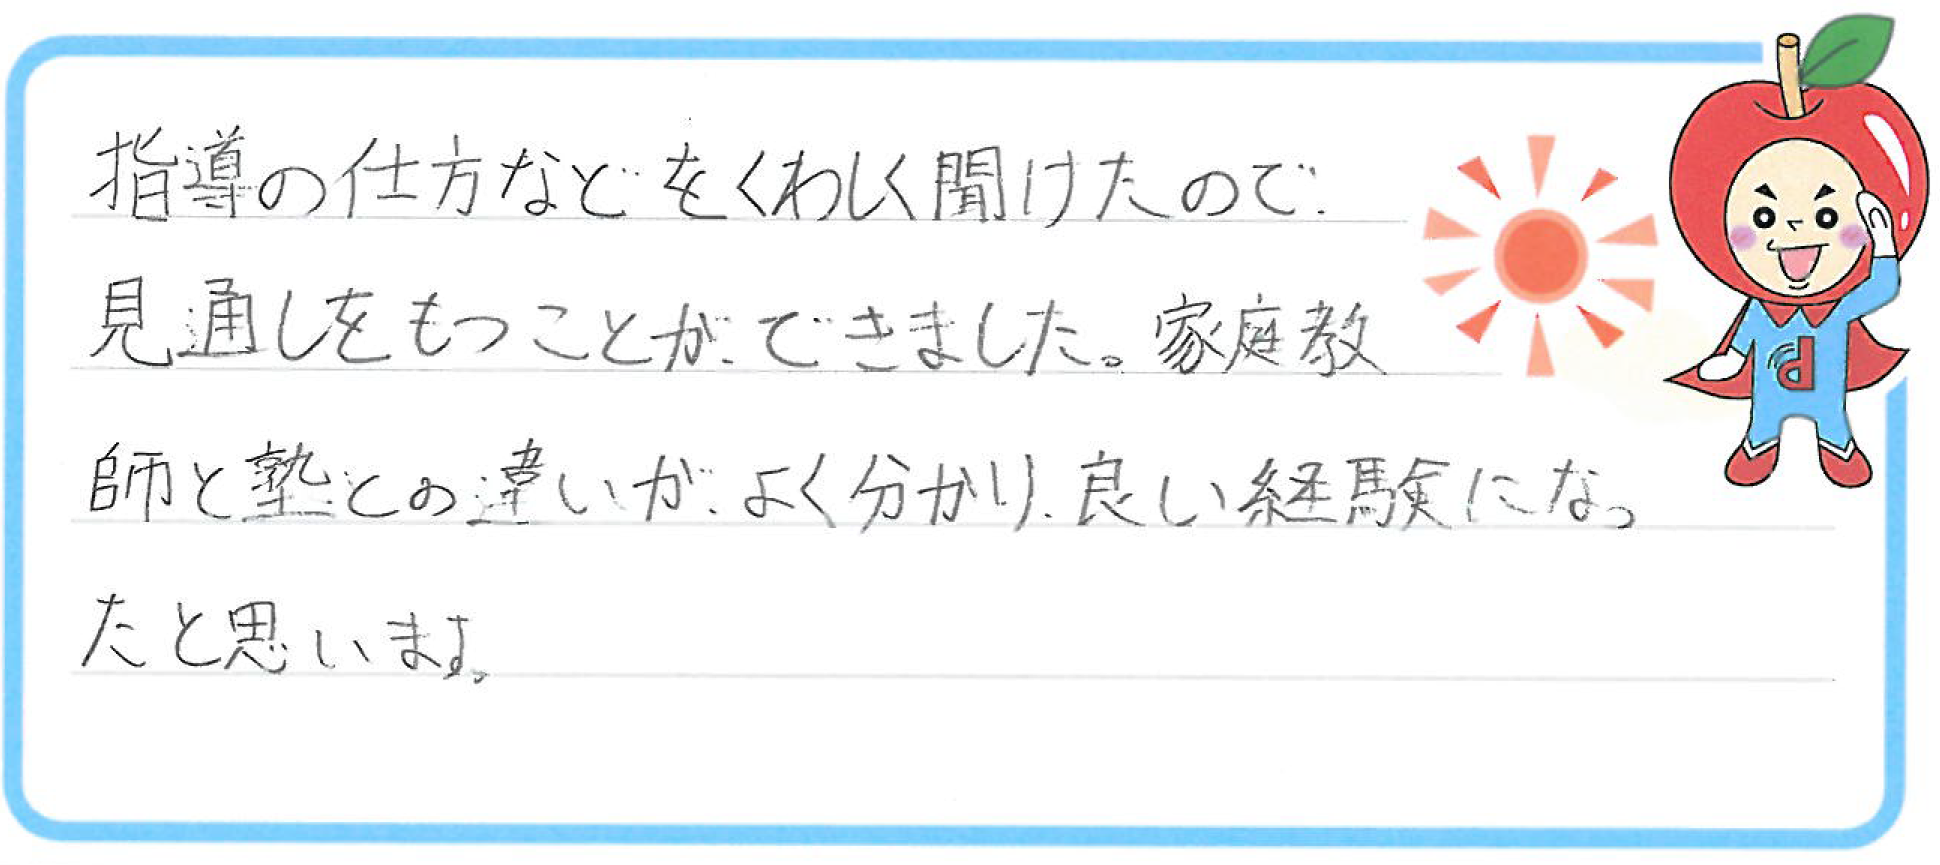 指導の仕方などをくわしく聞けたので、
見通しをもつことができました。家庭教
師と塾との違いがよく分かり、良い経験になっ
たと思います。